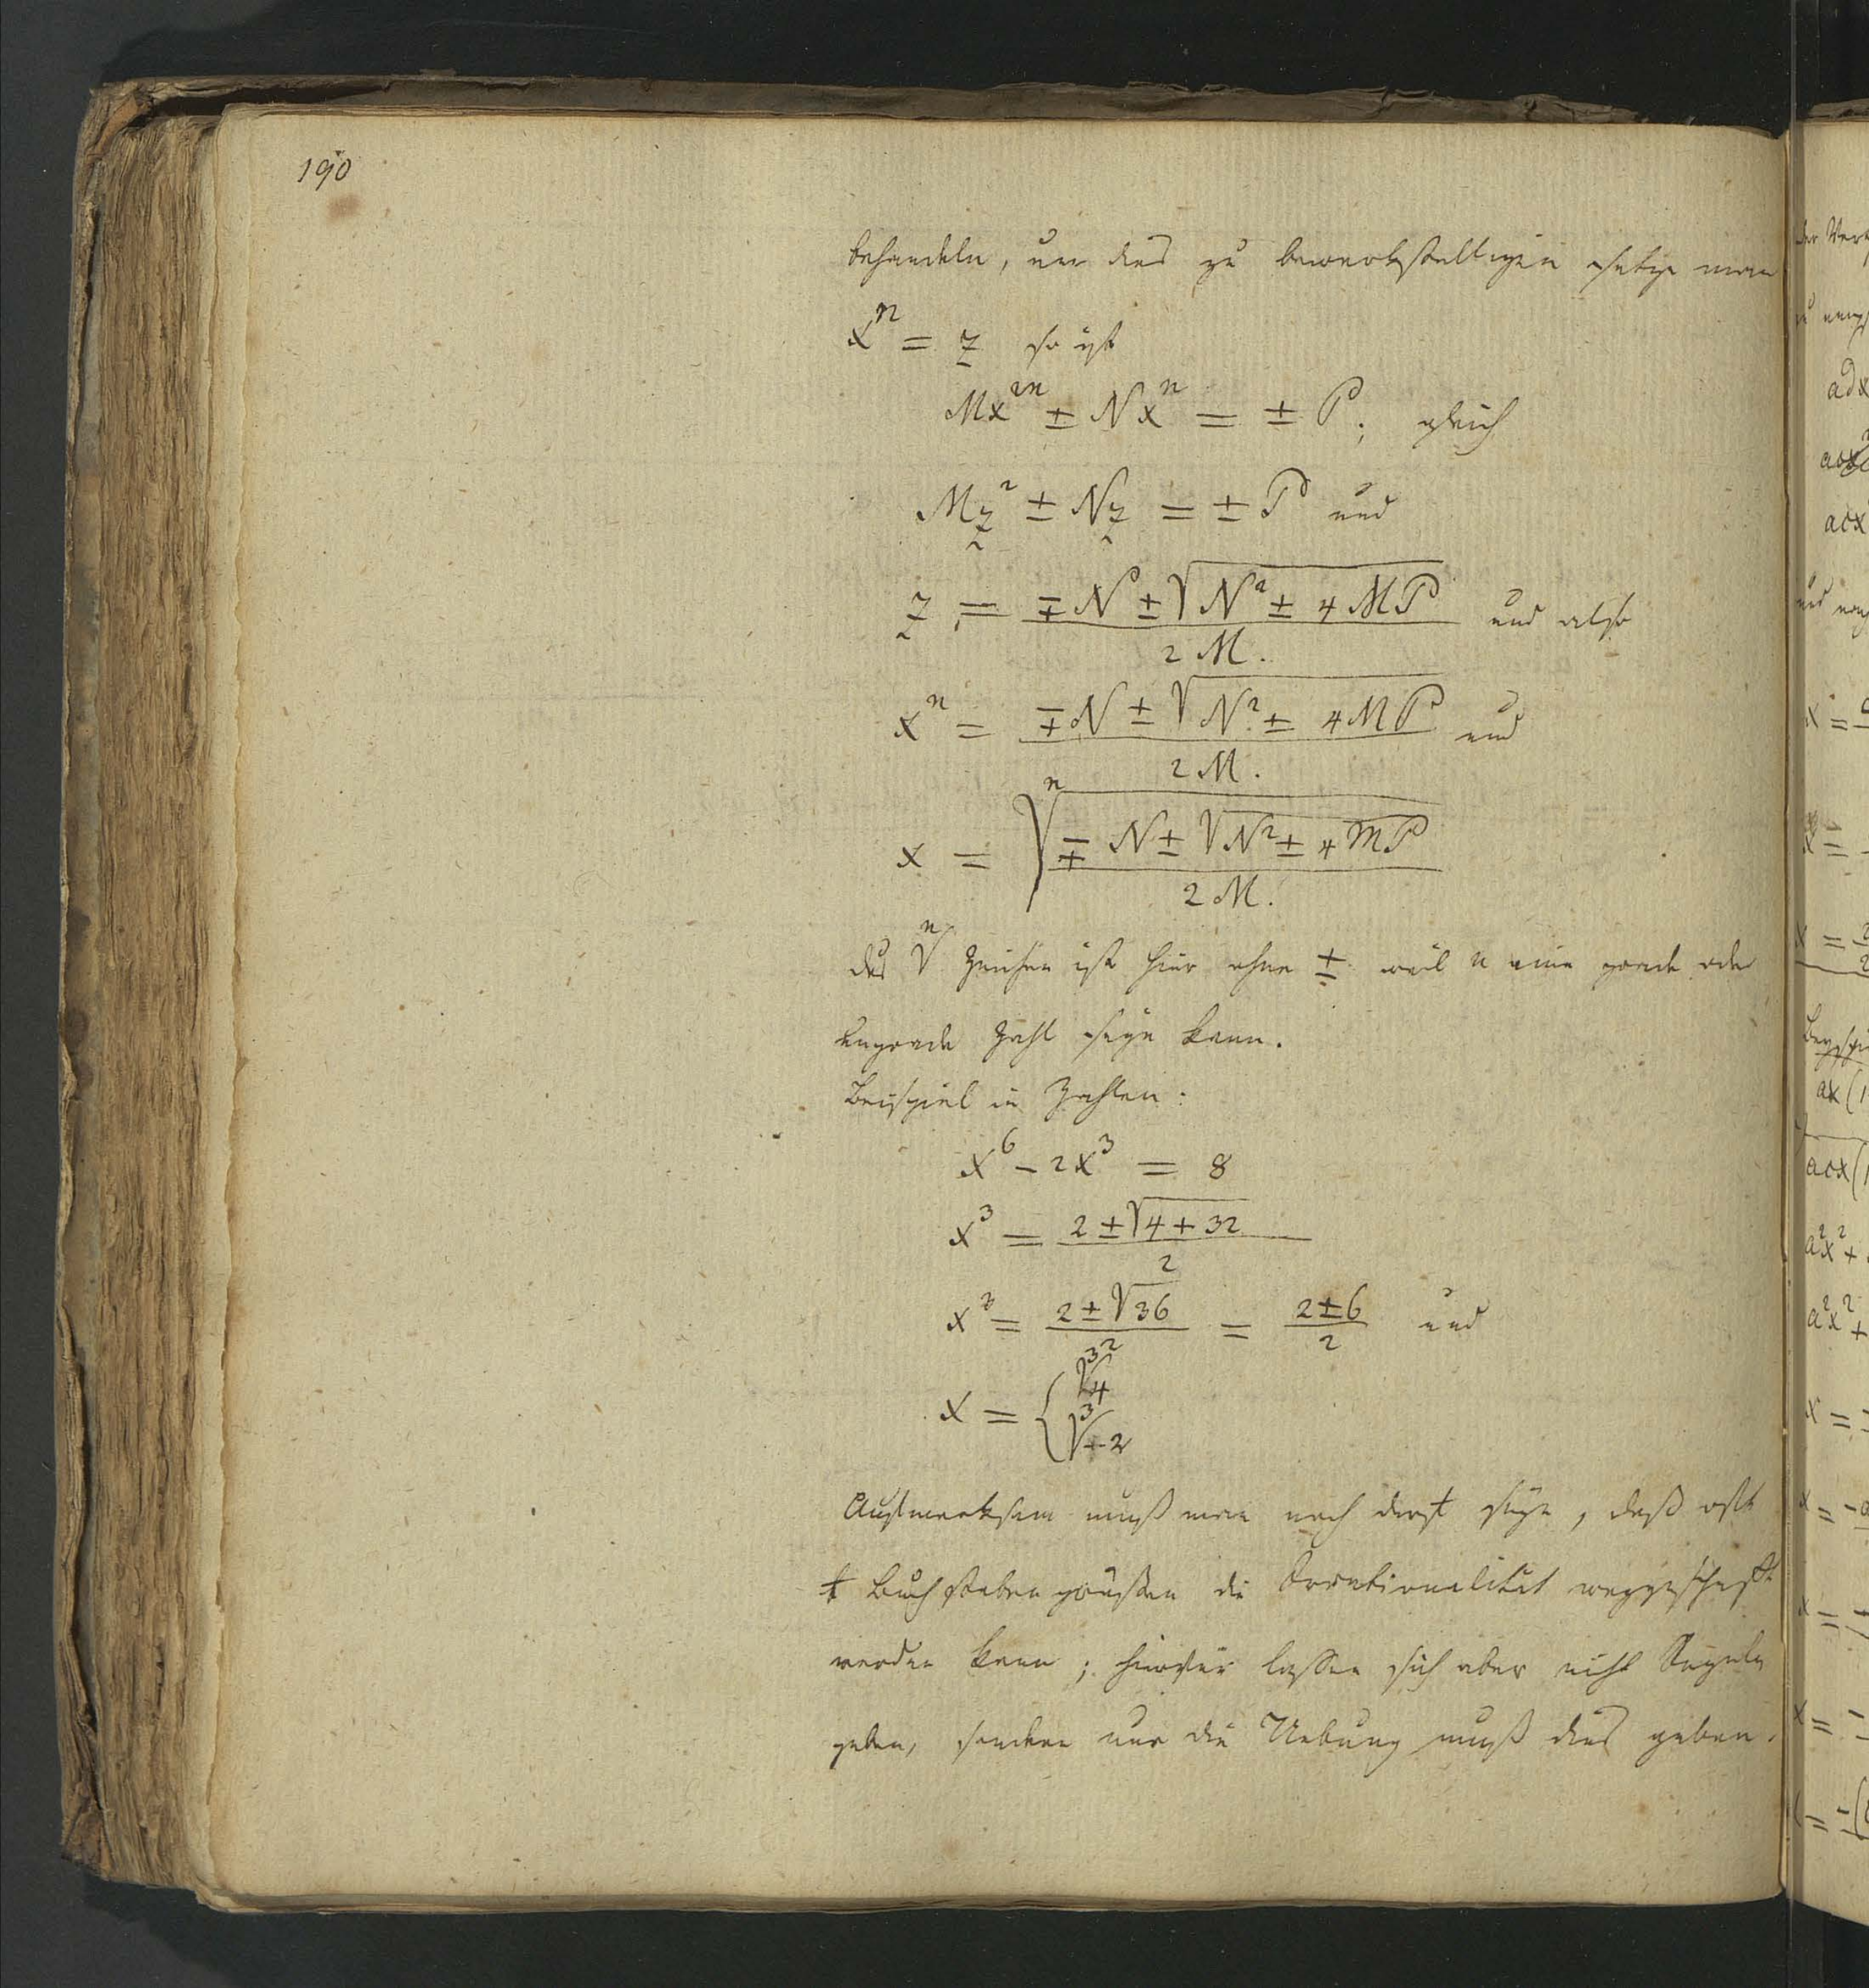 190
behandeln, um dies zu bewerkstelligen setze man
x^n = z so ist
Mx^2n ± Nx^n = ± P; gleich
Mz^2 ± Nz = ± P und
z = (∓N ± √(N^2 ± 4MP)) / 2M. und also
x^n = (∓N ± √(N^2 ± 4MP)) / 2M. und
x = n√((∓N ± √(N^2 ± 4MP)) / 2M.)
das n√ Zeichen ist hier ohne ± weil n eine grade oder
ungrade Zahl seyn kann.
Beispiel in Zahlen:
x^6 - 2x^3 = 8
x^3 = (2 ± √(4 + 32)) / 2
x^3 = (2 ± √36) / 2 = (2 ± 6) / 2 und
x = { 3√4
3√-2
Aufmerksam muß man noch seyn, daß oft
Buchstaben größen die Irrationalität weggeschaft
werden kann; hierfür lassen sich aber nicht Regeln
geben, sondern nur die Uebung muß dies geben.
der
ad x
acx
acx
und
x =
x =
x = 2
ax (1
acx (1
a^2x^2 +
a^2x^2 +
x =
x = -a
x = +
x = -
= -(